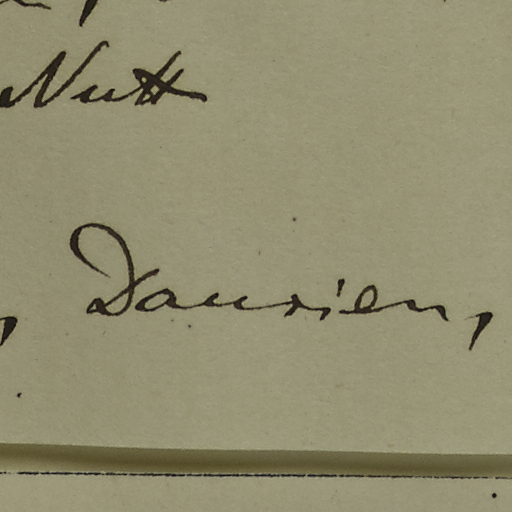 Nutt
, Daurien,